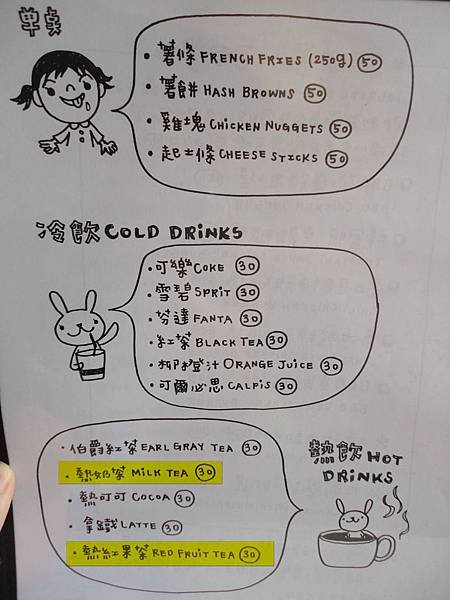 單桌
• 薯條 FRENCH FRIES (250g) 50
• 薯餅 HASH BROWNS 50
• 雞塊 CHICKEN NUGGETS 50
• 起士條 CHEESE STICKS 50
冷飲 COLD DRINKS
• 可樂 COKE 30
• 雪碧 SPRIT 30
• 芬達 FANTA 30
• 紅茶 BLACK TEA 30
• 柳橙汁 ORANGE JUICE 30
• 可爾必思 CALPIS 30
熱飲 HOT DRINKS
• 伯爵紅茶 EARL GRAY TEA 30
• 熱奶茶 MILK TEA 30
• 熱可可 COCOA 30
• 拿鐵 LATTE 30
• 熱紅果茶 RED FRUIT TEA 30